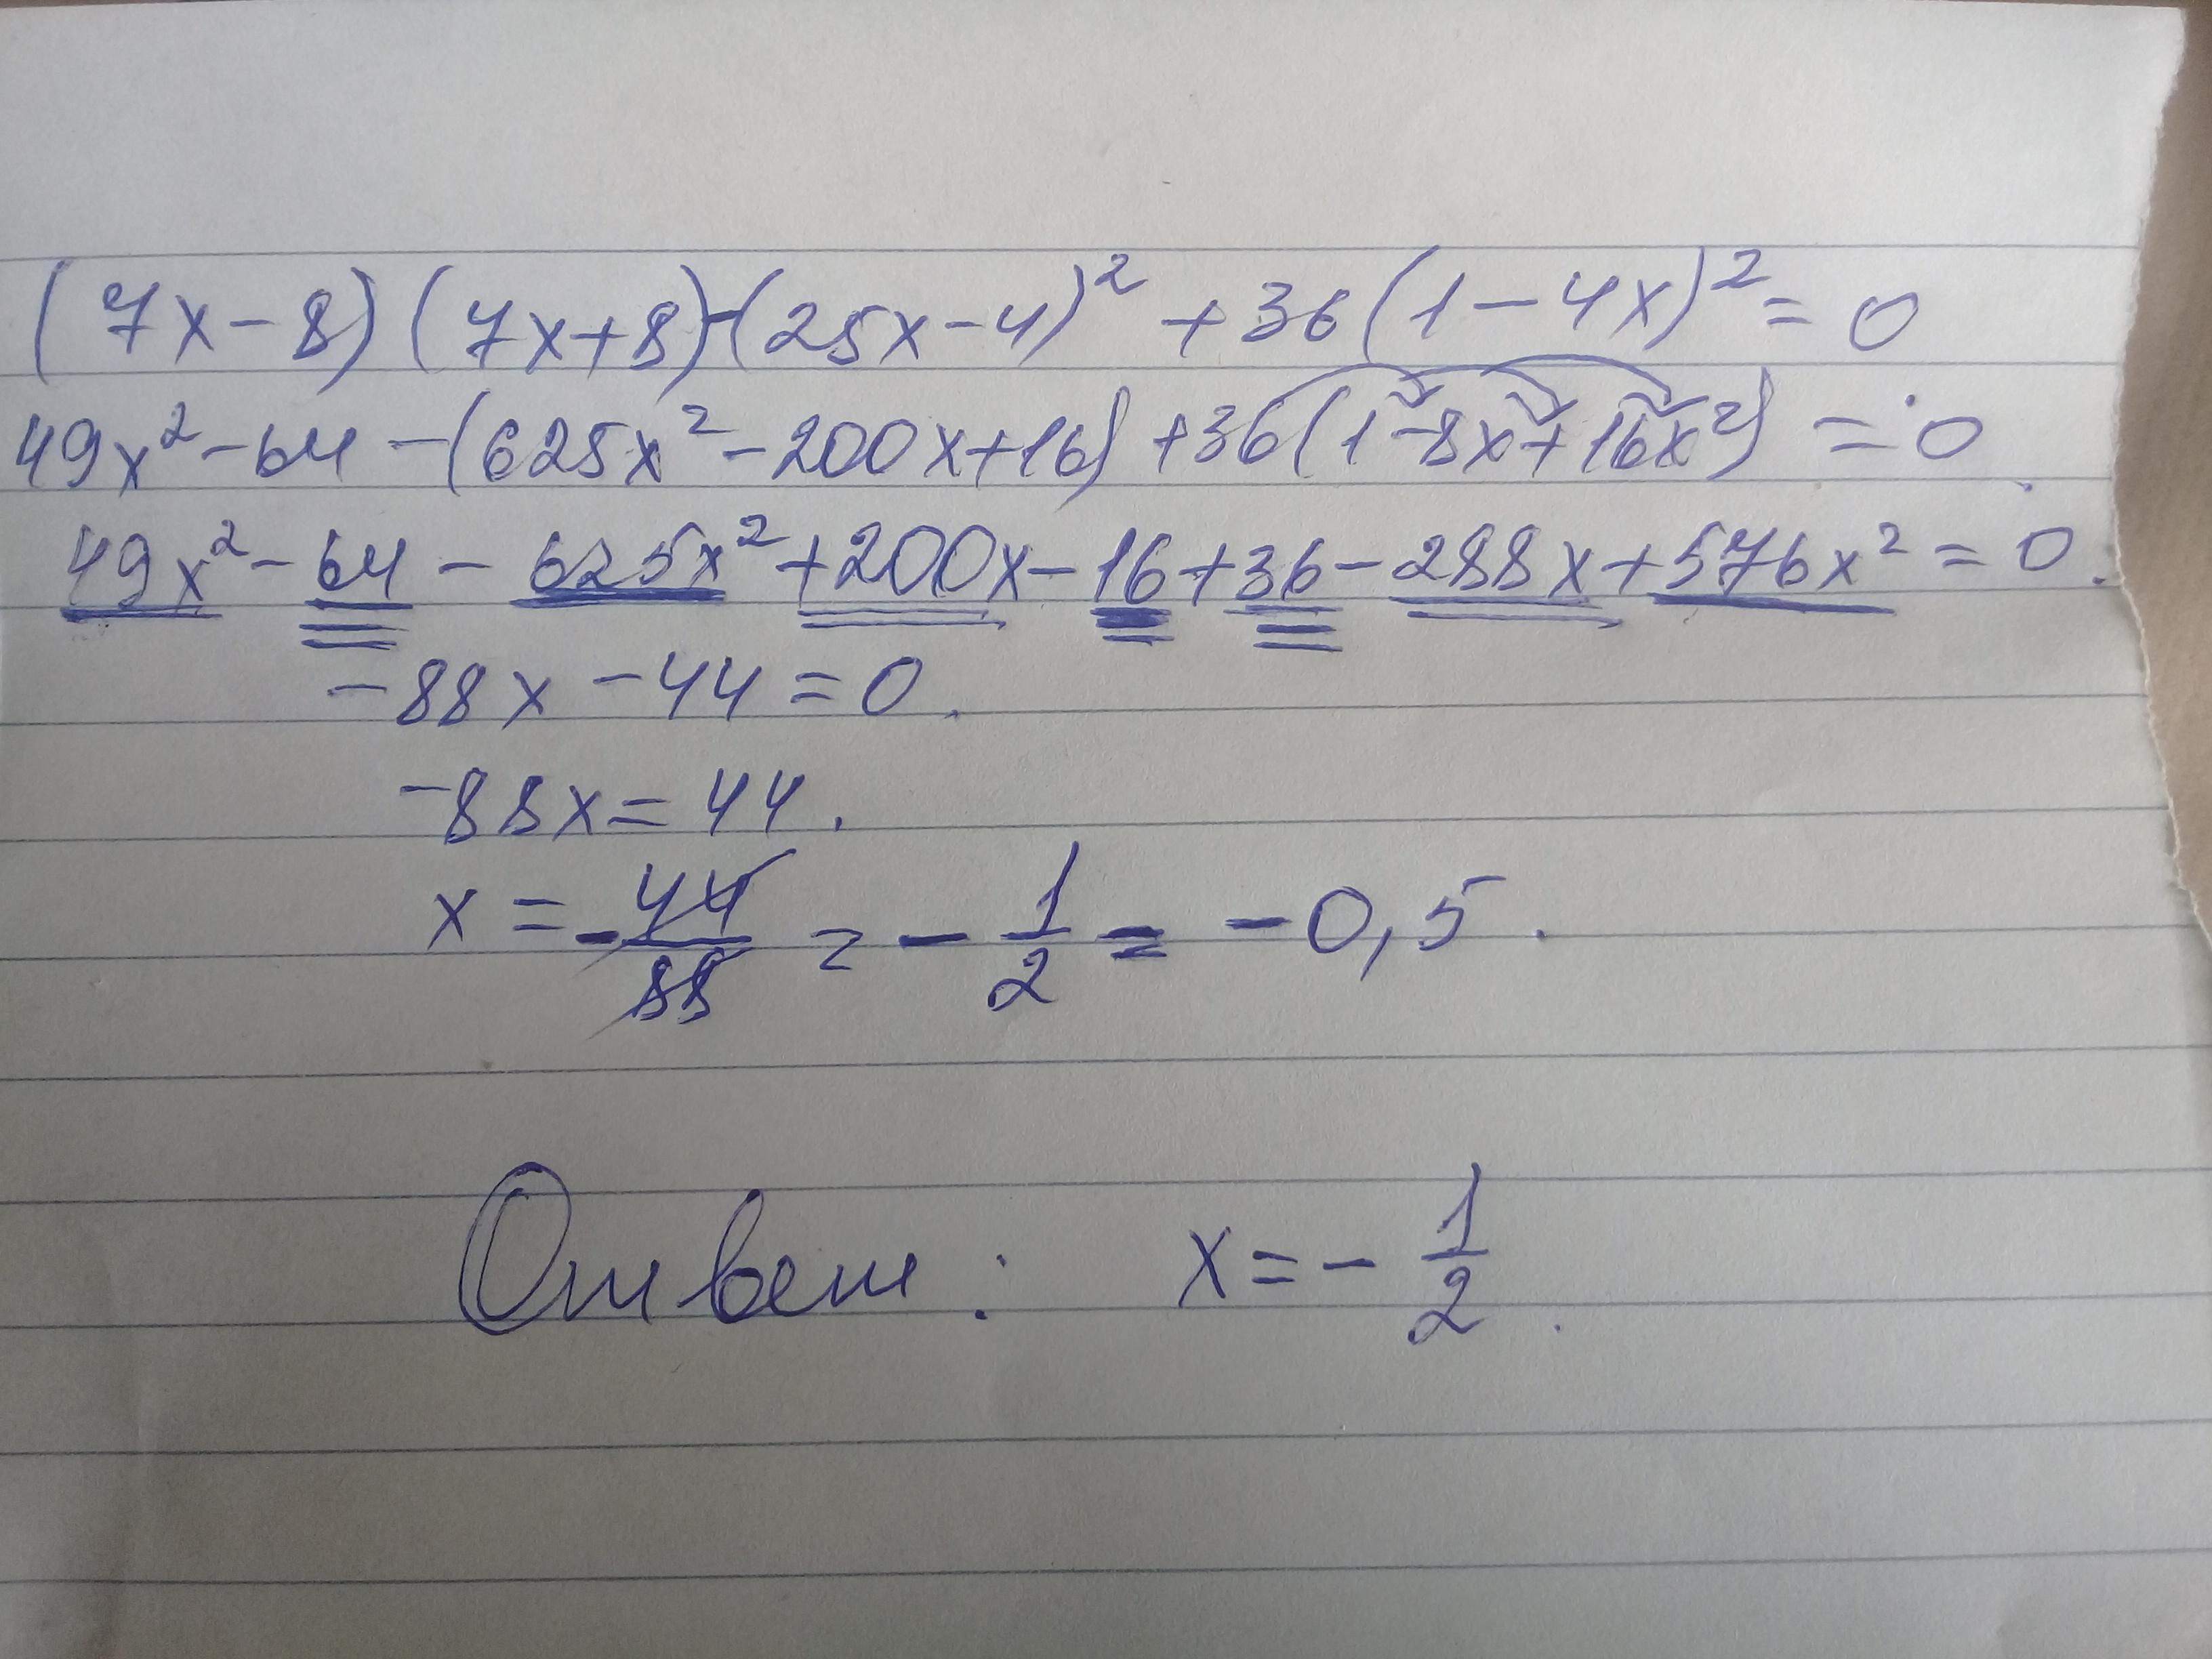 (7x-8)(7x+8)-(25x-4)² +36(1-4x)²=0
49x²-64-(625x²-200x+16)+36(1-8x+16x²)=0
49x²-64-625x²+200x-16+36-288x+576x²=0.
-88x-44=0.
-88x=44.
x=-44/88=-1/2=-0,5.
Ответ: x=-1/2.